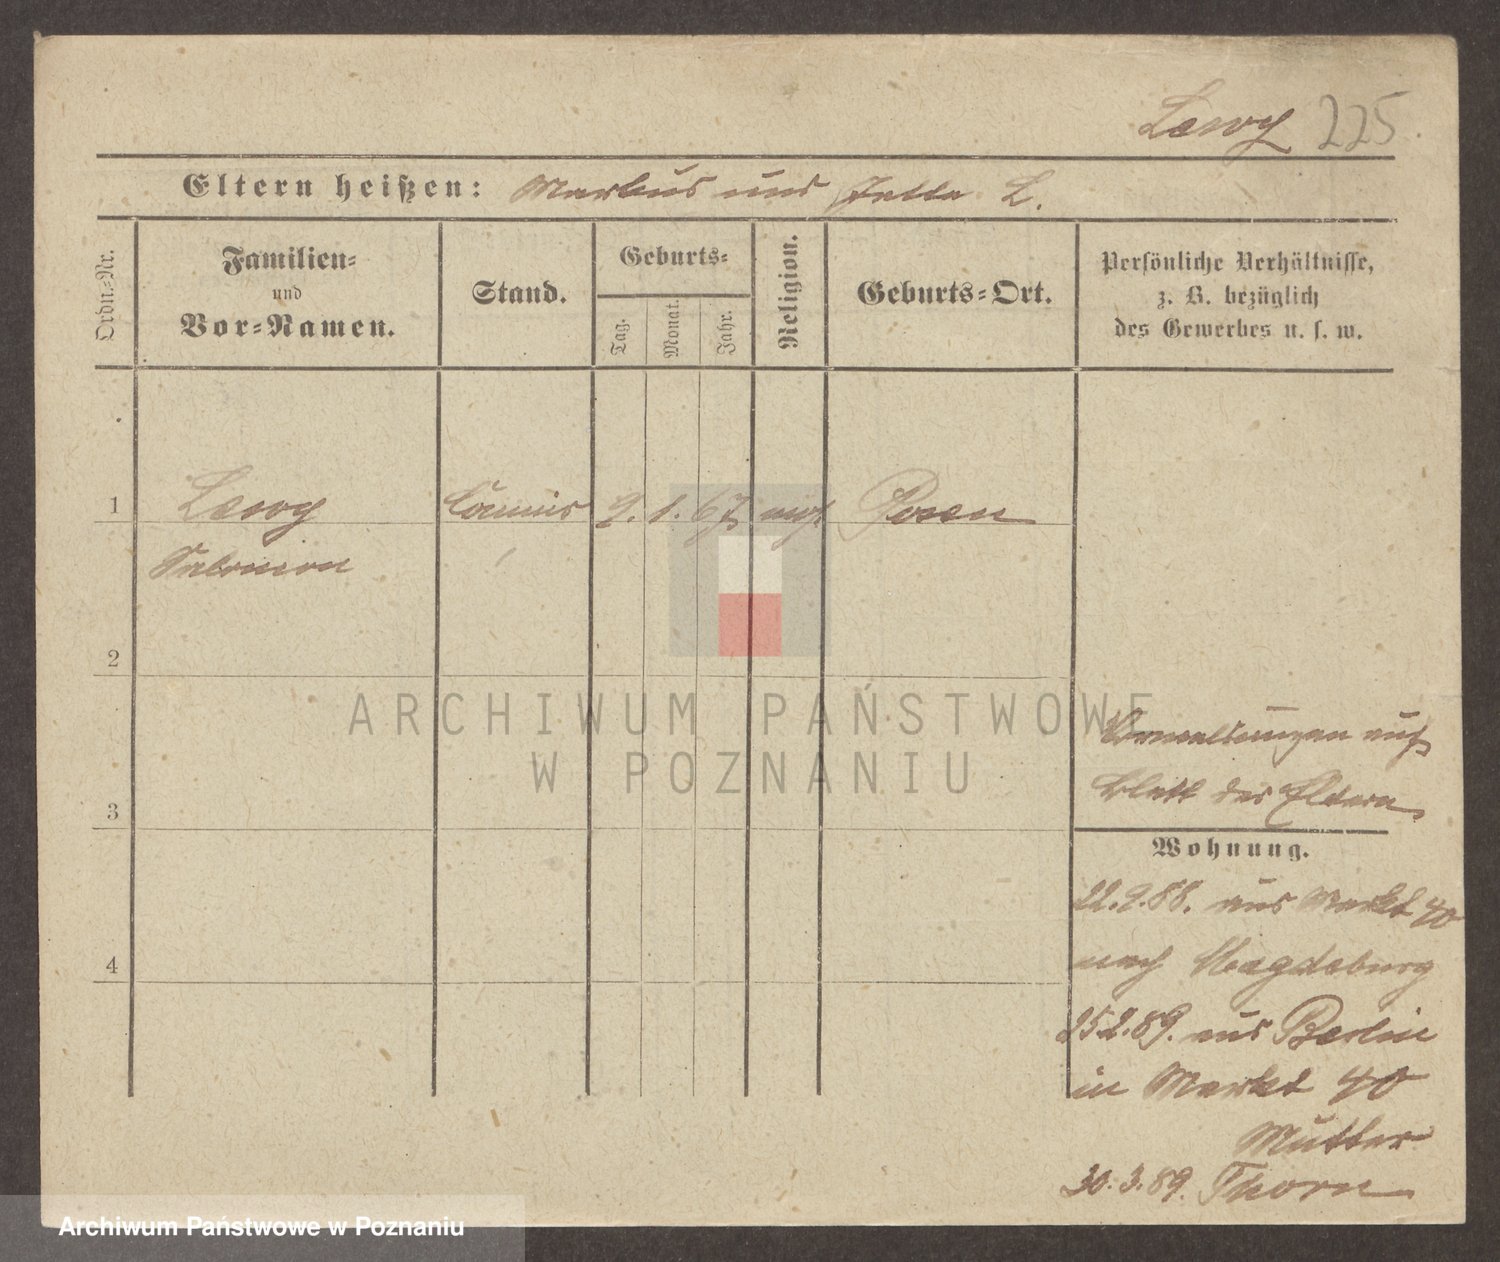 Lewy 225
Eltern heißen: Markus und Jette L.
Ordn.-Nr.
Familien-
und
Vor-Namen.
Stand.
Geburts-
Tag.
Monat.
Jahr.
Religion.
Geburts-Ort.
Persönliche Verhältnisse,
z. B. bezüglich
des Gewerbes u. s. w.
1 Lewy Commis 2. 1. 67 mos Posen
Salomon
2
3
4
auf
blatt der Eltern
Wohnung.
22.2.88. aus Markt 40
nach Magdeburg
25 2.89. aus Berlin
in Markt 40
Mutter
30.3.89. Thorn
ARCHIWUM PAŃSTWOWE
W POZNANIU
Archiwum Państwowe w Poznaniu